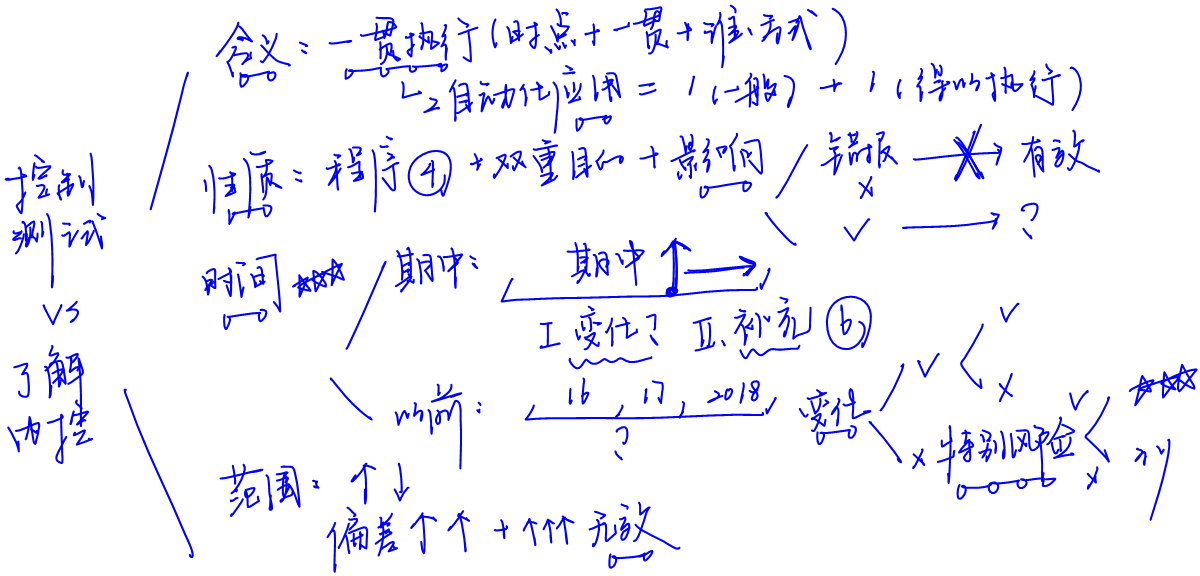 控制测试
VS
了解内控
含义：一贯执行（时点+一贯+谁、方式）
2自动化应用 = 1（一般）+ 1（得以执行）
性质：程序④+双重目的+影响
错报 × → 有效
× 
✓ → ?
时间 ☆☆☆
期中：
期中
I.变化？ II.补充 ⑥
以前：
16, 17, 2018
?
变化
✓
✓
×
× 特别风险
✓ ☆☆☆
×
范围：↑↓
偏差↑↑+↑↑↑无效